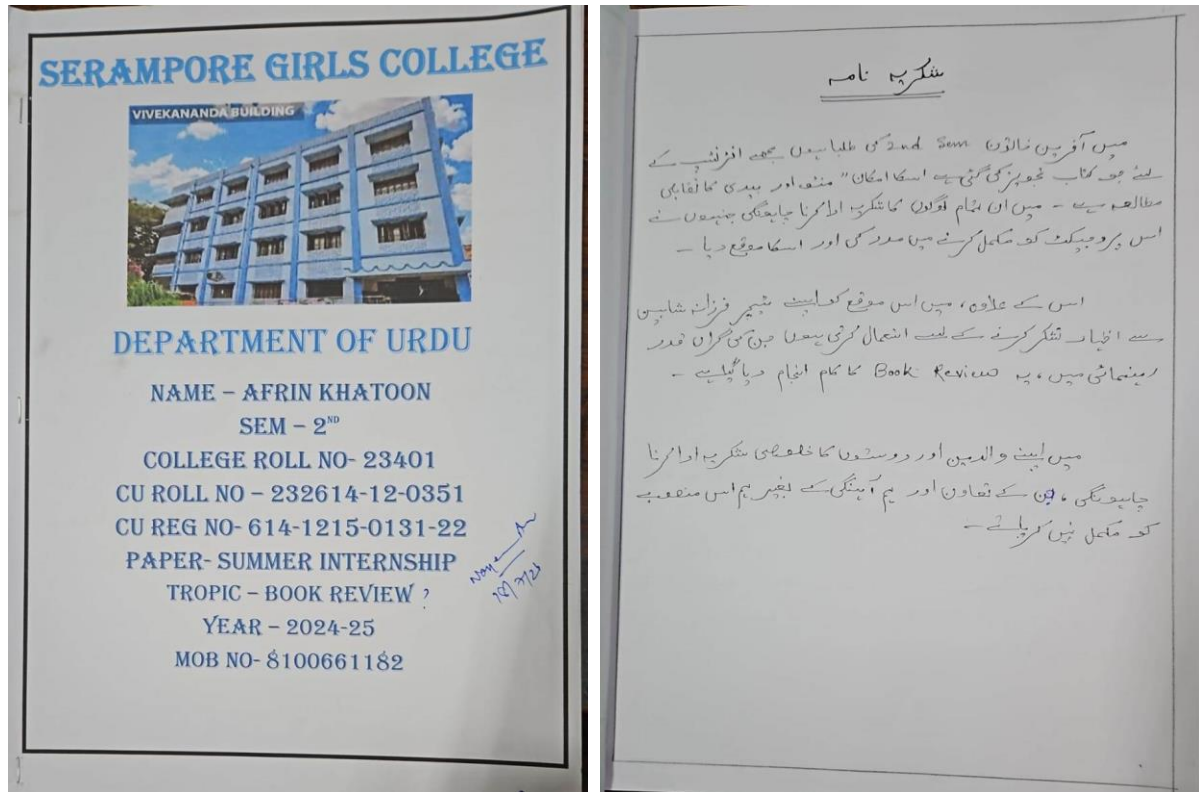 SERAMPORE GIRLS COLLEGE
VIVEKANANDA BUILDING
DEPARTMENT OF URDU
NAME – AFRIN KHATOON
SEM – 2ND
COLLEGE ROLL NO- 23401
CU ROLL NO – 232614-12-0351
CU REG NO- 614-1215-0131-22
PAPER- SUMMER INTERNSHIP
TROPIC – BOOK REVIEW ?
YEAR – 2024-25
MOB NO- 8100661182
شکریہ نامہ
میں آفرین خاتون 2nd Sem کی طلبا ہوں مجھے کے
لئے جو کتاب تجویز کی گئی ہے اسکا " منٹو اور بیدی کا تقابلی
مطالعہ ہے ۔ میں ان تمام لوگوں کا شکریہ ادا کرنا چاہونگی جنہوں نے
اس پروجیکٹ کو مکمل کرنے میں مدد کی اور اسکا موقع دیا ۔
اس کے علاوہ، میں اس موقع کو اپنے ٹیچر فرزانہ شاہین
سے اظہار تشکر کرنے کے لئے استعمال کرتی ہوں جن کی گراں قدر
رہنمائی میں، یہ Book Review کا کام انجام دیا گیا ہے ۔
میں اپنے والدین اور دوستوں کا خصوصی شکریہ ادا کرنا
چاہونگی، جن کے تعاون اور ہم آہنگی کے بغیر ہم اس منصوبے
کو مکمل نہیں کر پاتے ۔